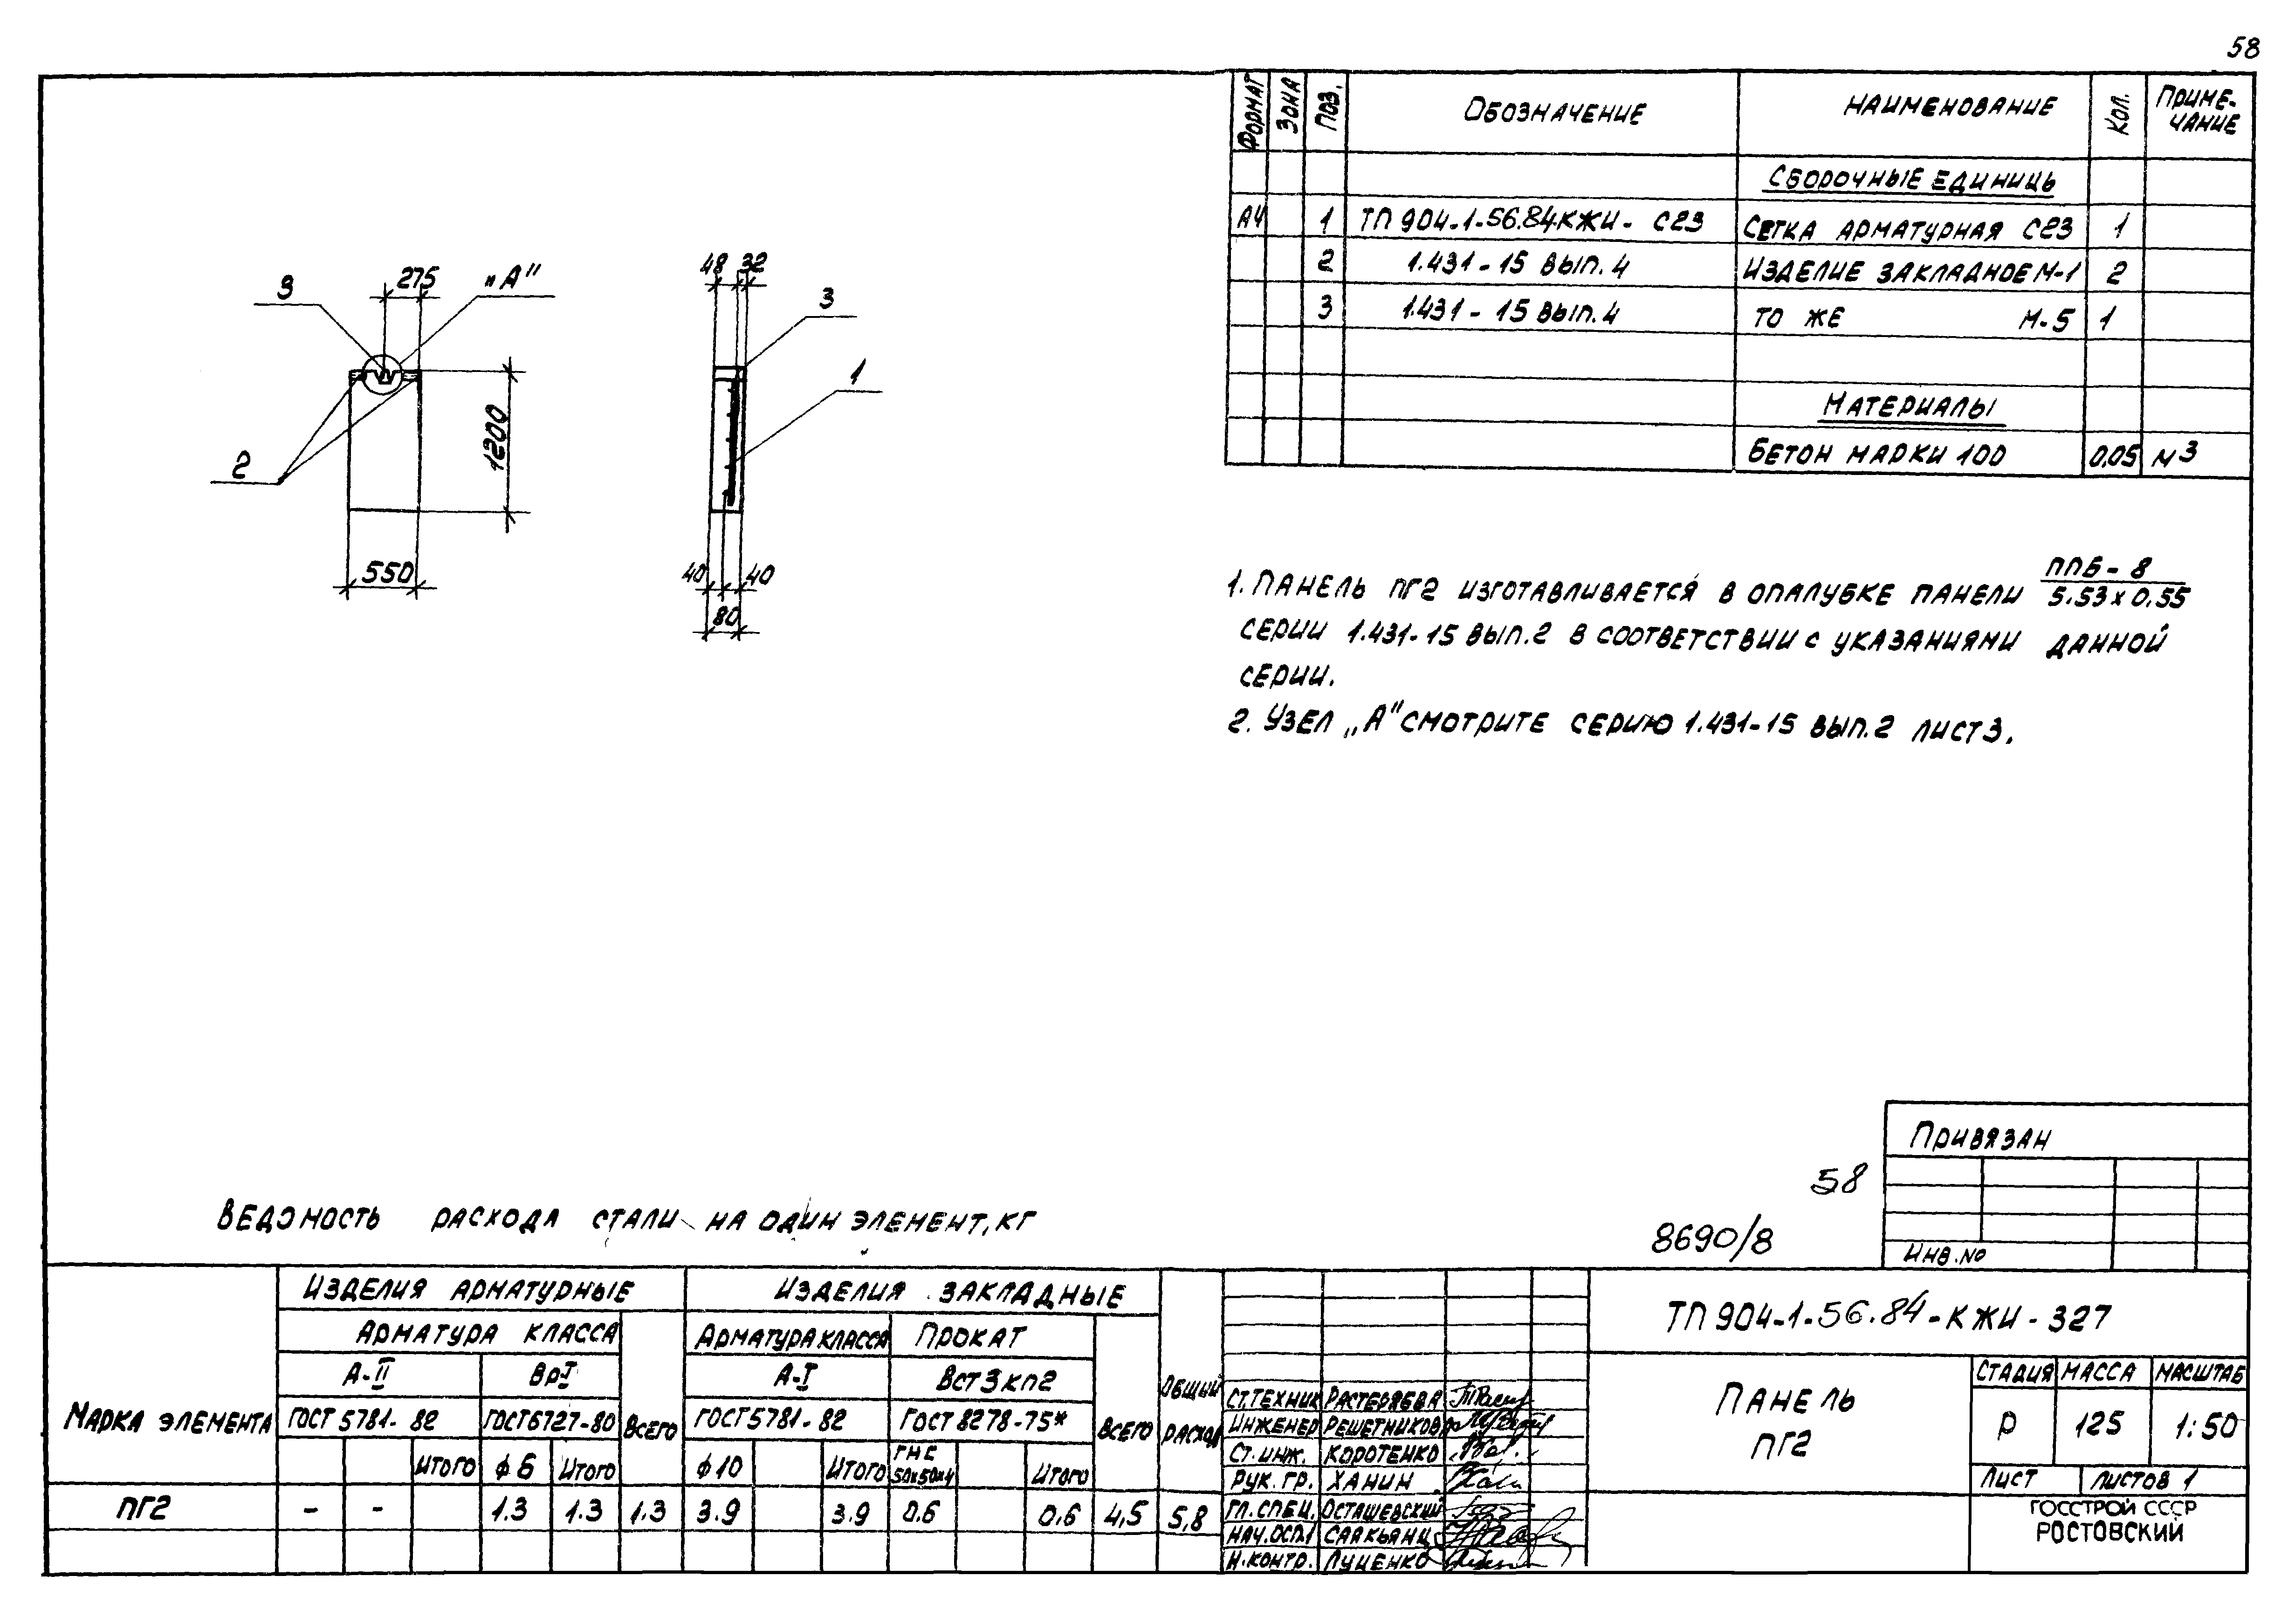 58
ФОРМАТ ЗОНА ПОЗ. ОБОЗНАЧЕНИЕ НАИМЕНОВАНИЕ КОЛ. ПРИМЕ-
ЧАНИЕ
СБОРОЧНЫЕ ЕДИНИЦЬ
А4 1 ТП 904-1-56.84КЖИ- С23 СЕТКА АРМАТУРНАЯ С23 1
2 1.431-15 ВЫП.4 ИЗДЕЛИЕ ЗАКЛАДНОЕ М-1 2
3 1.431-15 ВЫП.4 ТО ЖЕ М-5 1
МАТЕРИАЛЫ
БЕТОН МАРКИ 100 0.05 М3
3 275 „А"
2
1200
550
48 32
3
1
40 40
80
1. ПАНЕЛЬ ПГ2 ИЗГОТАВЛИВАЕТСЯ В ОПАЛУБКЕ ПАНЕЛИ ППБ-8
5.53х0.55
СЕРИИ 1.431-15 ВЫП.2 В СООТВЕТСТВИИ С УКАЗАНИЯМИ ДАННОЙ
СЕРИИ.
2. УЗЕЛ „А" СМОТРИТЕ СЕРИЮ 1.431-15 ВЫП.2 ЛИСТ 3.
ПРИВЯЗАН
ИНВ.NO
58
8690/8
ВЕДОМОСТЬ РАСХОДА СТАЛИ НА ОДИН ЭЛЕМЕНТ, КГ
МАРКА ЭЛЕМЕНТА ИЗДЕЛИЯ АРМАТУРНЫЕ ИЗДЕЛИЯ ЗАКЛАДНЫЕ ОБЩЫЙ РАСХОД
АРМАТУРА КЛАССА ВСЕГО АРМАТУРА КЛАССА ПРОКАТ ВСЕГО
А-II ВрI А-I ВСт3кп2
ГОСТ 5781-82 ГОСТ6727-80 ГОСТ5781-82 ГОСТ 8278-75*
ИТОГО ф6 ИТОГО ф10 ИТОГО ГНС 50х50х4 ИТОГО
ПГ2 - - 1.3 1.3 1.3 3.9 3.9 0.6 0.6 4,5 5,8
СТ.ТЕХНИК РАСТЕРЯЕВА
ИНЖЕНЕР РЕШЕТНИКОВА
СТ.ИНЖ. КОРОТЕНКО
РУК. ГР. ХАНИН
ГЛ.СПЕЦ. ОСТАШЕВСКИЙ
НАЧ.ОСП.1 СААКЬЯНЦ
Н.КОНТР. ЛУЦЕНКО
ТП 904-1-56.84-КЖИ-327
ПАНЕЛЬ
ПГ2
СТАДИЯ МАССА МАСШТАБ
Р 125 1:50
ЛИСТ ЛИСТОВ 1
ГОССТРОЙ СССР
РОСТОВСКИЙ